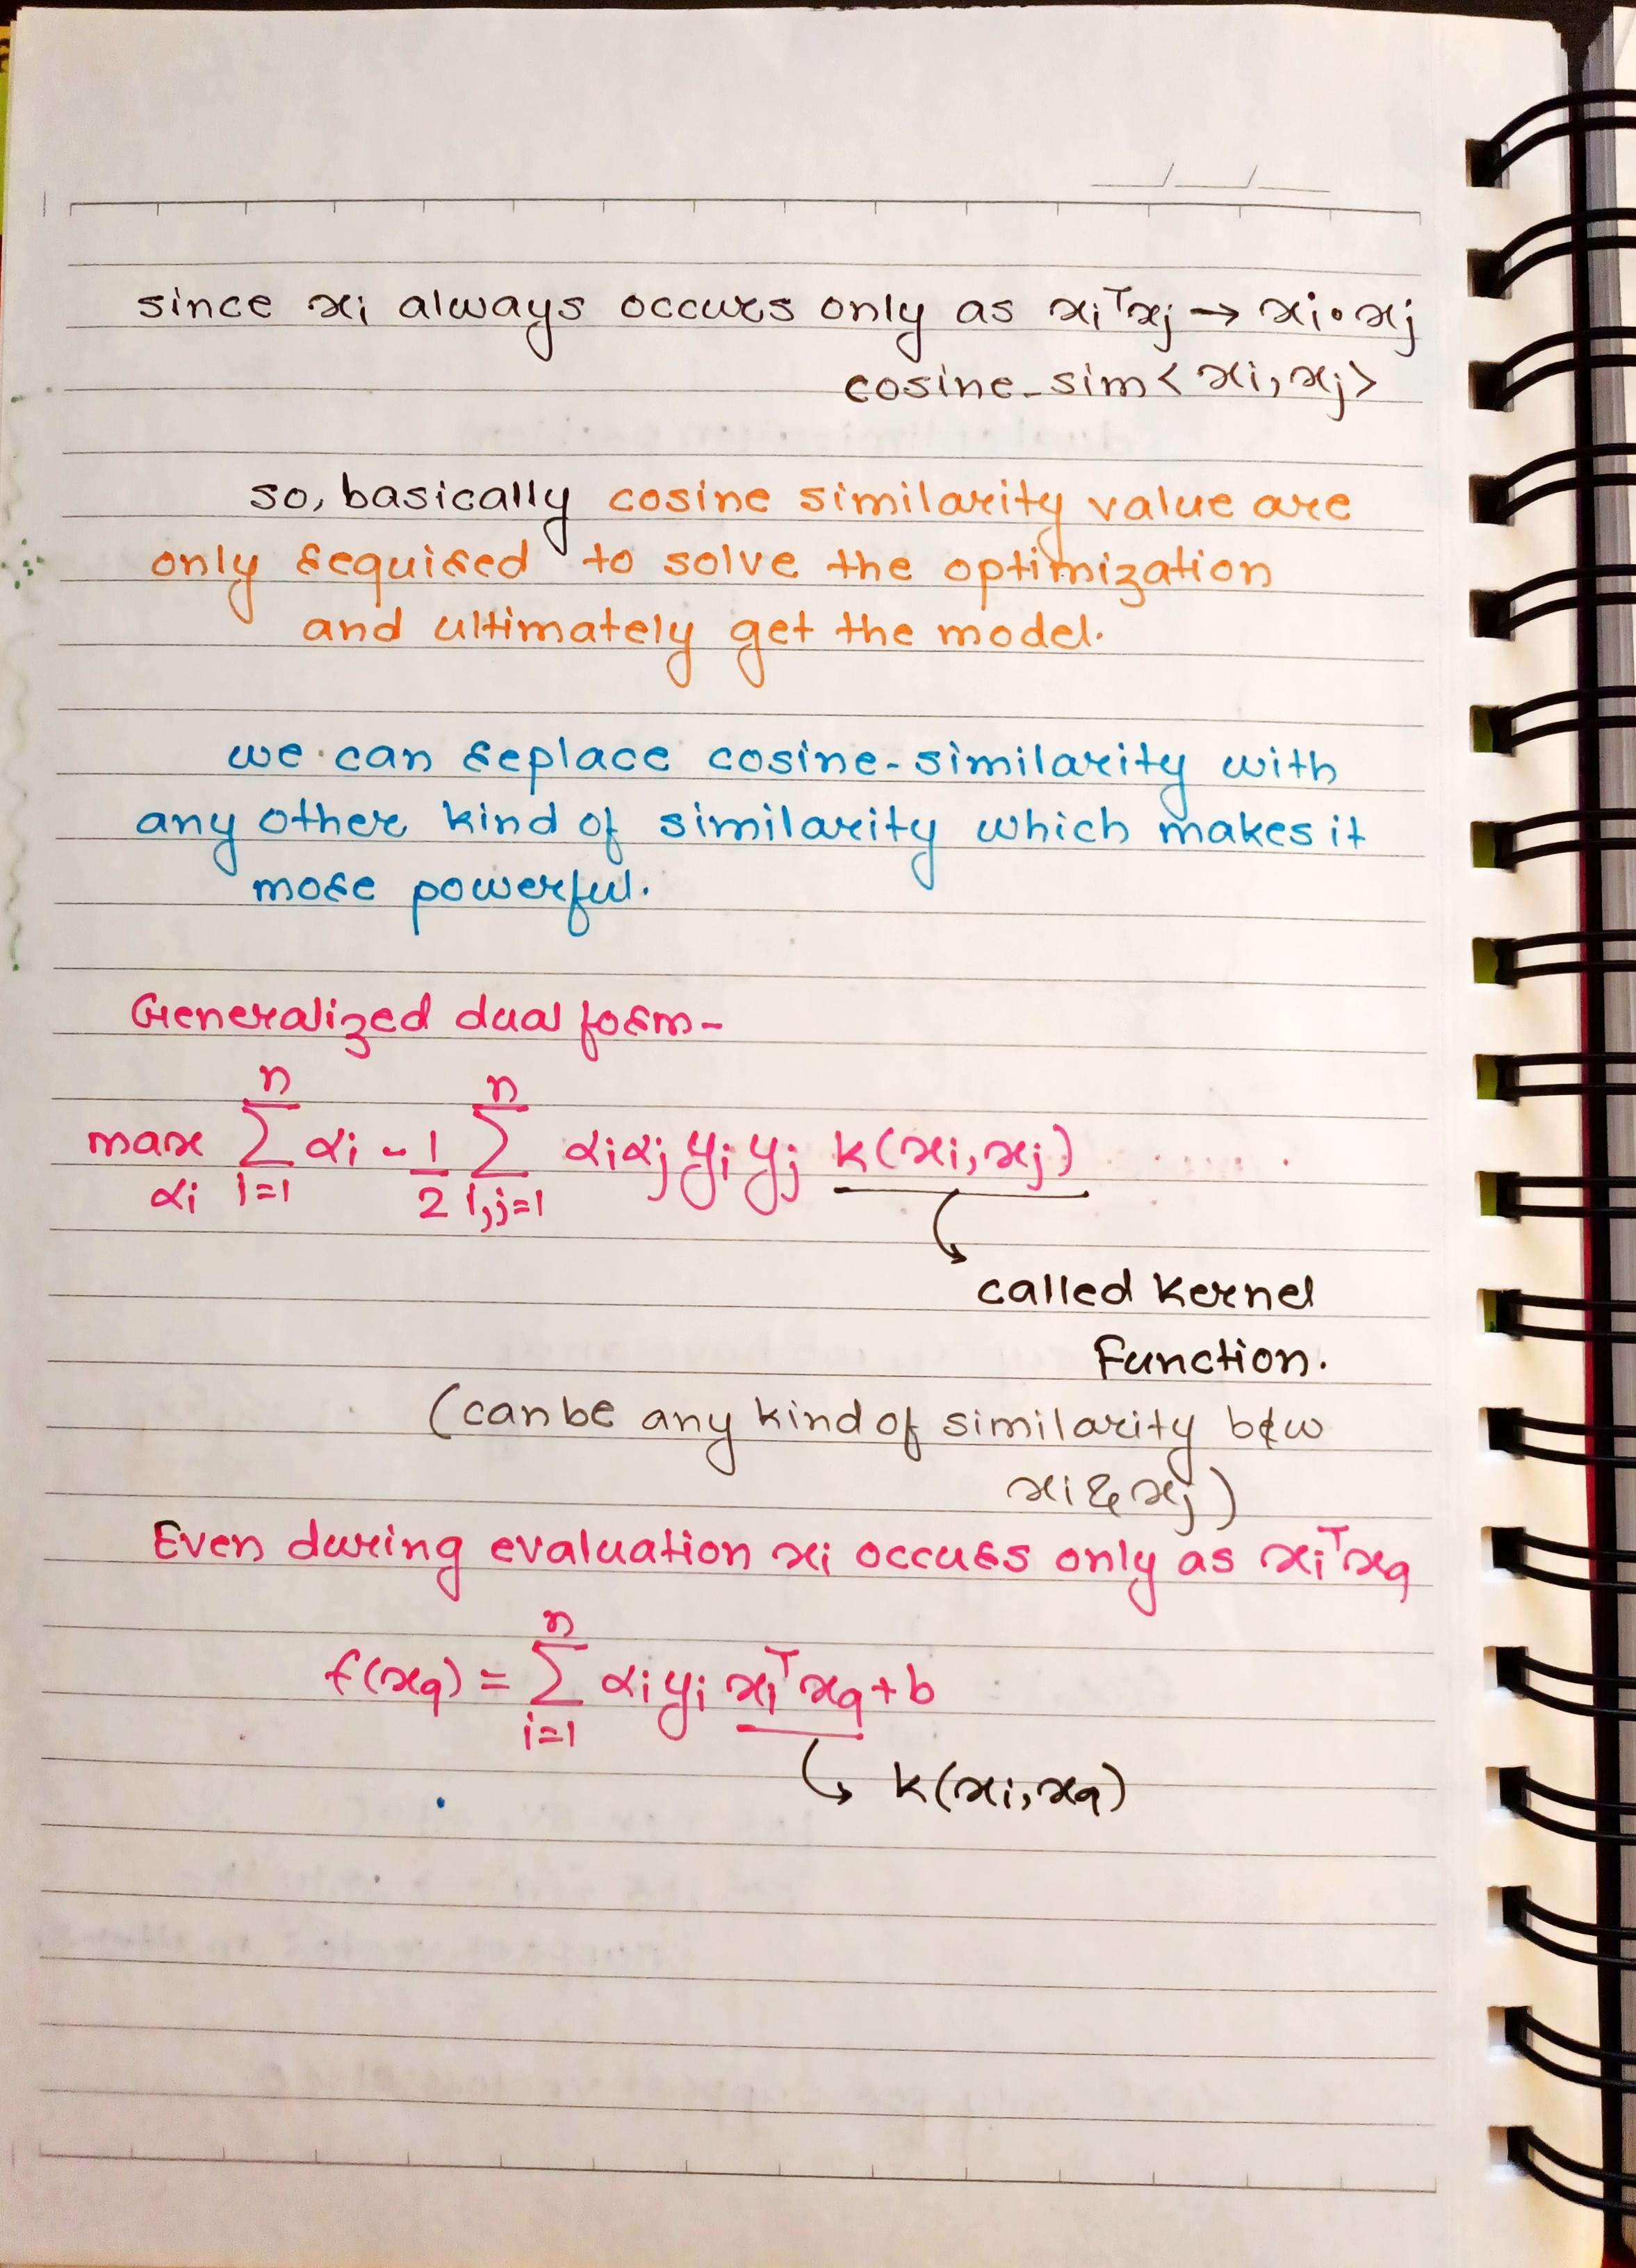 since xᵢ always occurs only as xᵢᵀxⱼ → xᵢ•xⱼ
cosine-sim<xᵢ, xⱼ>
so, basically cosine similarity value are
only required to solve the optimization
and ultimately get the model.
we can replace cosine-similarity with
any other kind of similarity which makes it
more powerful.
Generalized dual form-
max αᵢ ∑ i=1 n αᵢ - 1/2 ∑ i,j=1 n αᵢαⱼ yᵢ yⱼ k(xᵢ, xⱼ)
called kernel
function.
(can be any kind of similarity b/w
xᵢ & xⱼ)
Even during evaluation xᵢ occurs only as xᵢᵀxq
f(xq) = ∑ i=1 n αᵢyᵢ xᵢᵀxq + b
↳ k(xᵢ, xq)